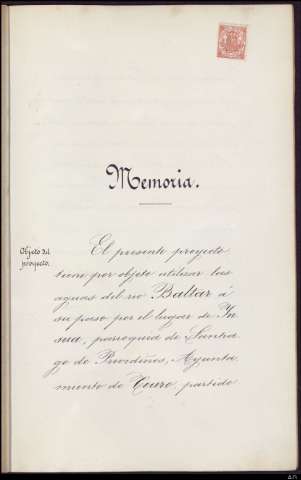 Memoria.
Objeto del
proyecto.
El presente proyecto
tiene por objeto utilizar las
aguas del rio Baltar á
su paso por el lugar de Yn
sua, parroquia de Santia
go de Ayunta
miento de partido